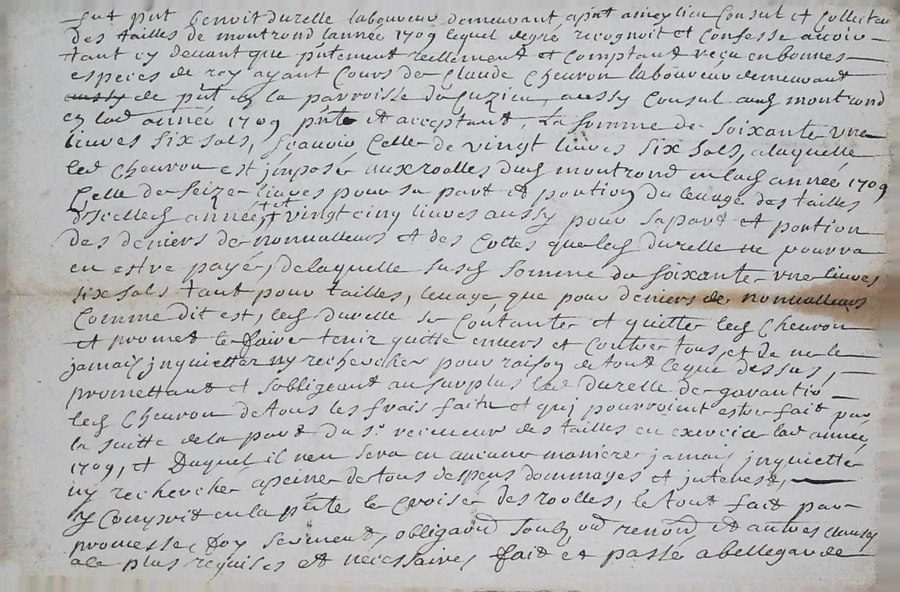 fut pnt benoit durelle laboureur demeurant a pnt lieu Consul et Collecteur
des tailles de montrond lannée 1709 lequel degré recognoit et confesse avoir
tant cy devant que pntement reellement et comptant reçu en bonnes
especes de roy ayant Cours de Claude Cheuron laboureur demeurant
aussy de pnt en la parroisse de Cuzieu, aussy Consul montrond
en lad année 1709 pnt et acceptant, La somme de soixante une
livres six sols, scavoir Celle de vingt livres six sols, a laquelle
led Cheuron est jmposé aux roolles dud montrond en lad année 1709
Celle de seize livres pour sa part et portion du levage des tailles
dicelled année, et vingt cinq livres aussy pour sa part et portion
des deniers de nonvalleurs et des Cottes que led durelle ne pourra
en estre payé, de laquelle susd somme de soixante une livres
six sols tant pour tailles, levage, que pour deniers de nonvalleurs
Comme dit est, led durelle se Contante et quitte led Cheuron
et promet le faire tenir quitte envers et Contre tous, et de ne le
jamais jnquietter ny rechercher pour raison de tout ce que dessus,
promettant et sobligeant au surplus led durelle de garantir
led Cheuron de tous les frais faits et qui pourroient estre fait par
la suitte de la part du Sr receveur des tailles en exercice lad année
1709, et duquel il nen sera en aucune maniere jamais jnquietter
ny rechercher a peine de tous despens dommages et interests,
y Compris en la pnte le Croisé des roolles, le tout fait par
promesse, foy serment, obligaon soubz on renon et autres clauses
a ce plus requises et necessaires fait et passé a bellegarde